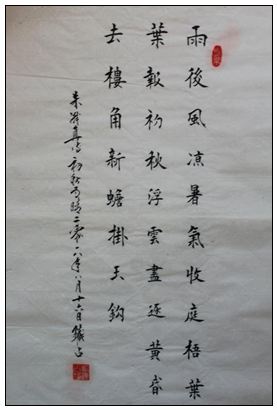 雨後風凉暑氣收庭梧葉
葉報初秋浮雲盡逐黃昏
去樓角新蟾掛玉鈎
朱淑真詩初秋雨晴二零一八年八月十六日